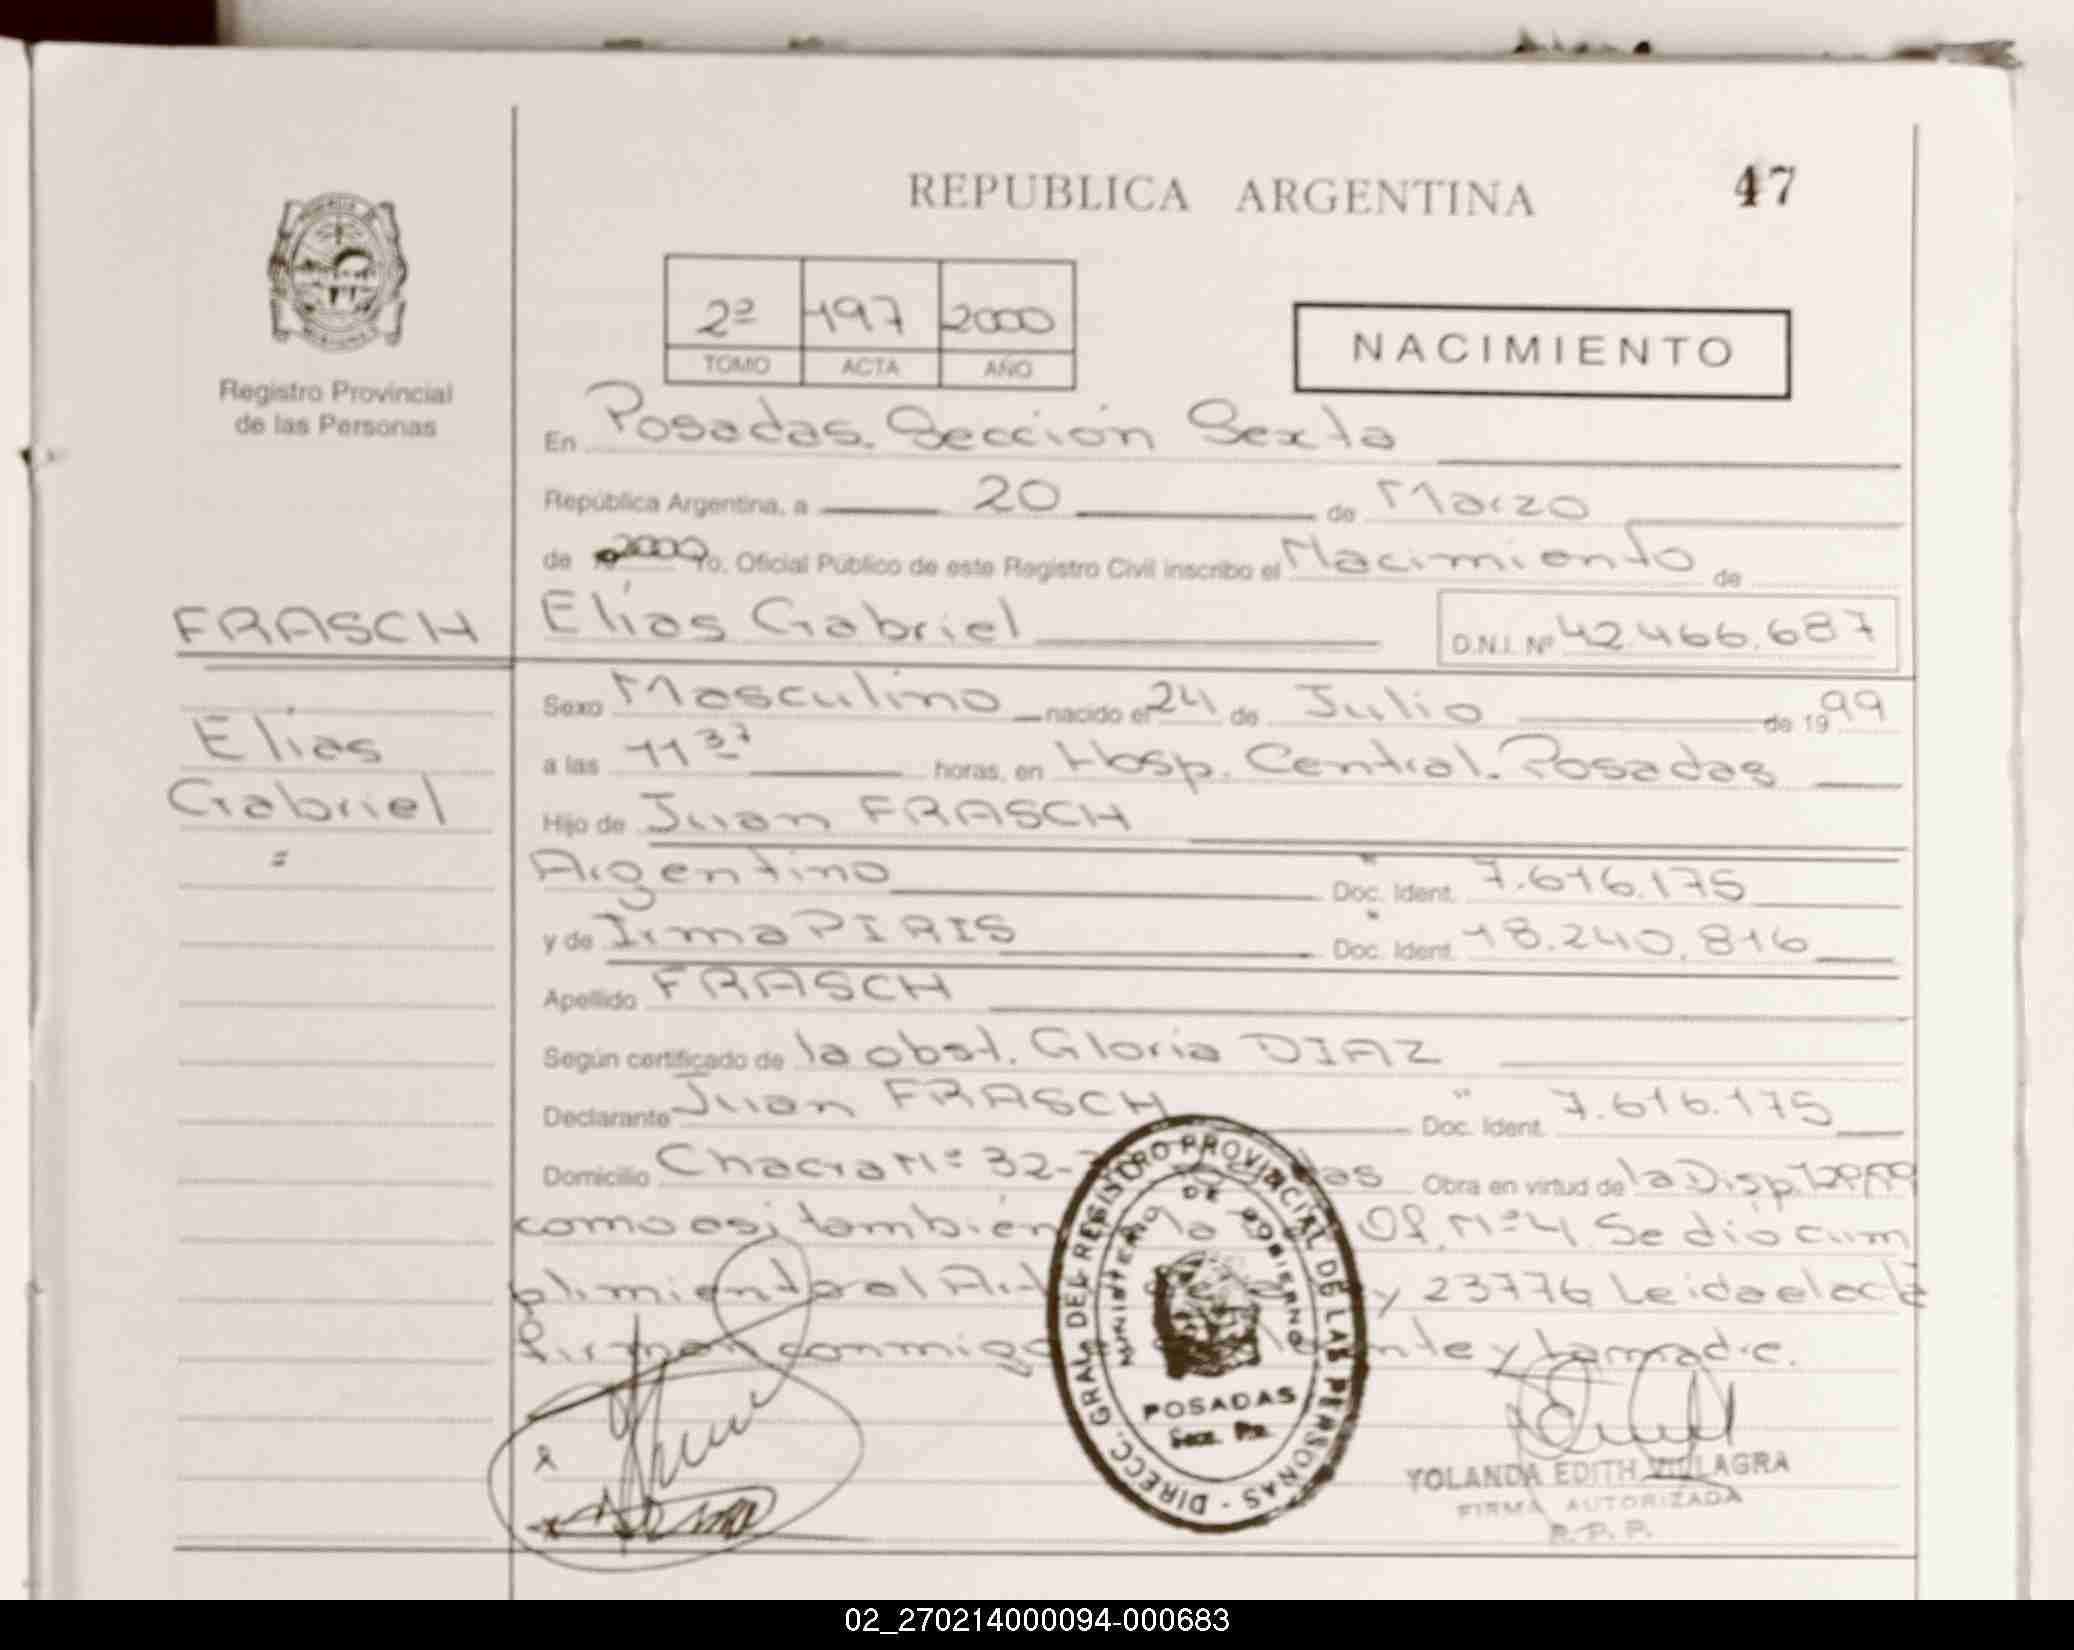 REPUBLICA ARGENTINA
47
2º 197 2000
TOMO ACTA AÑO
NACIMIENTO
Registro Provincial
de las Personas
En Posadas. Sección Sexta
República Argentina, a 20 de Marzo
de 2000 Yo, Oficial Público de este Registro Civil inscribo el Nacimiento de
FRASCH
Elías Gabriel
D.N.I. Nº 42.466.687
Elías
Gabriel
Sexo Masculino nacido el 24 de Julio de 1999
a las 11 37 horas, en Hosp. Central. Posadas
Hijo de Juan FRASCH
Argentino Doc. Ident. 7.616.175
y de Irma PIRIS Doc. Ident. 18.240.816
Apellido FRASCH
Según certificado de la obst. Gloria DIAZ
Declarante Juan FRASCH Doc. Ident. 7.616.175
Domicilio Chacra Nº 32- Obra en virtud de la Disp.
como asi también Of. Nº 4. Se dio cum
plimiento al Art y 23776 Leida el acta
firman conmigo y la madre.
DIRECC. GRAL. DEL REGISTRO PROVINCIAL DE LAS PERSONAS
MINISTERIO DE GOBIERNO
POSADAS
YOLANDA EDITH VILLAGRA
FIRMA AUTORIZADA
R. P. P.
02_270214000094-000683